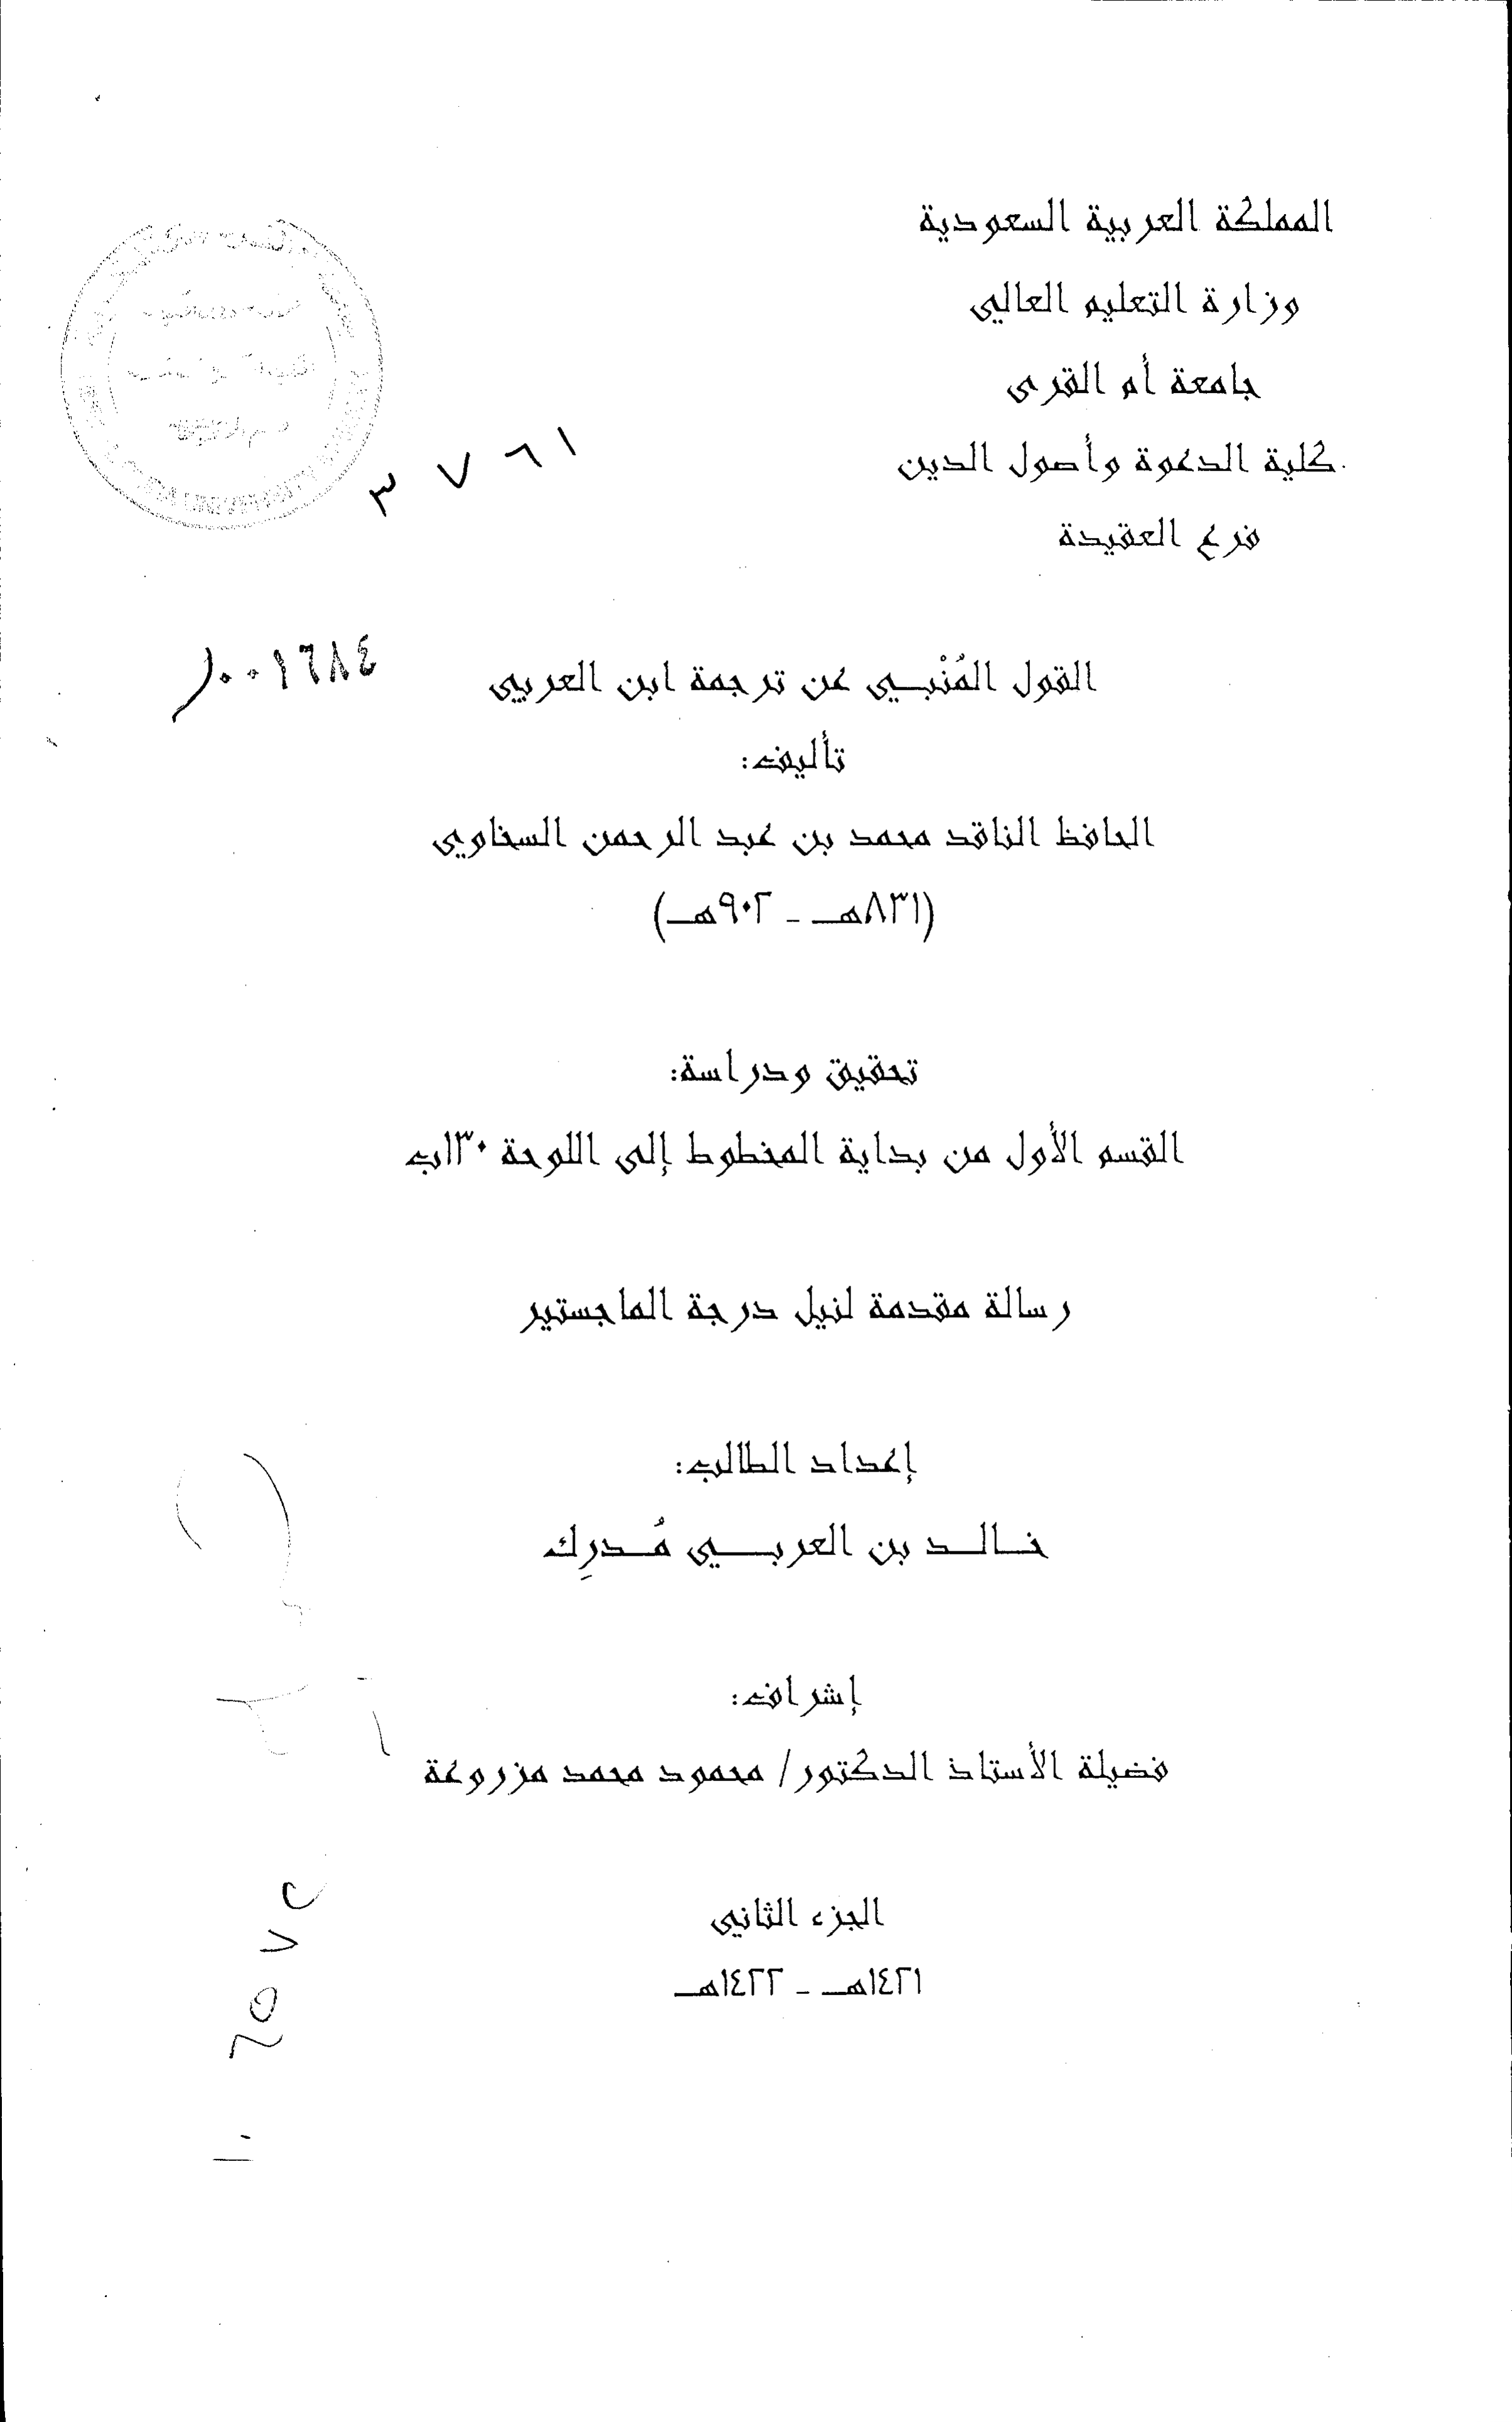 المملكة العربية السعودية
وزارة التعليم العالي
جامعة أم القرى
كلية الدعوة وأصول الدين
فرع العقيدة
٣٧٦١
١٠٠١٦٨٤
القول المُنْبي عن ترجمة ابن العربي
تأليف:
الحافظ الناقد محمد بن عبد الرحمن السخاوي
(٨٣١هـ - ٩٠٢هـ)
تحقيق ودراسة:
القسم الأول من بداية المخطوط إلى اللوحة ١٣٠ب
رسالة مقدمة لنيل درجة الماجستير
إعداد الطالب:
خالد بن العربي مُدرِك
إشراف:
فضيلة الأستاذ الدكتور/ محمود محمد مزروعة
الجزء الثاني
١٤٢١هـ - ١٤٢٢هـ